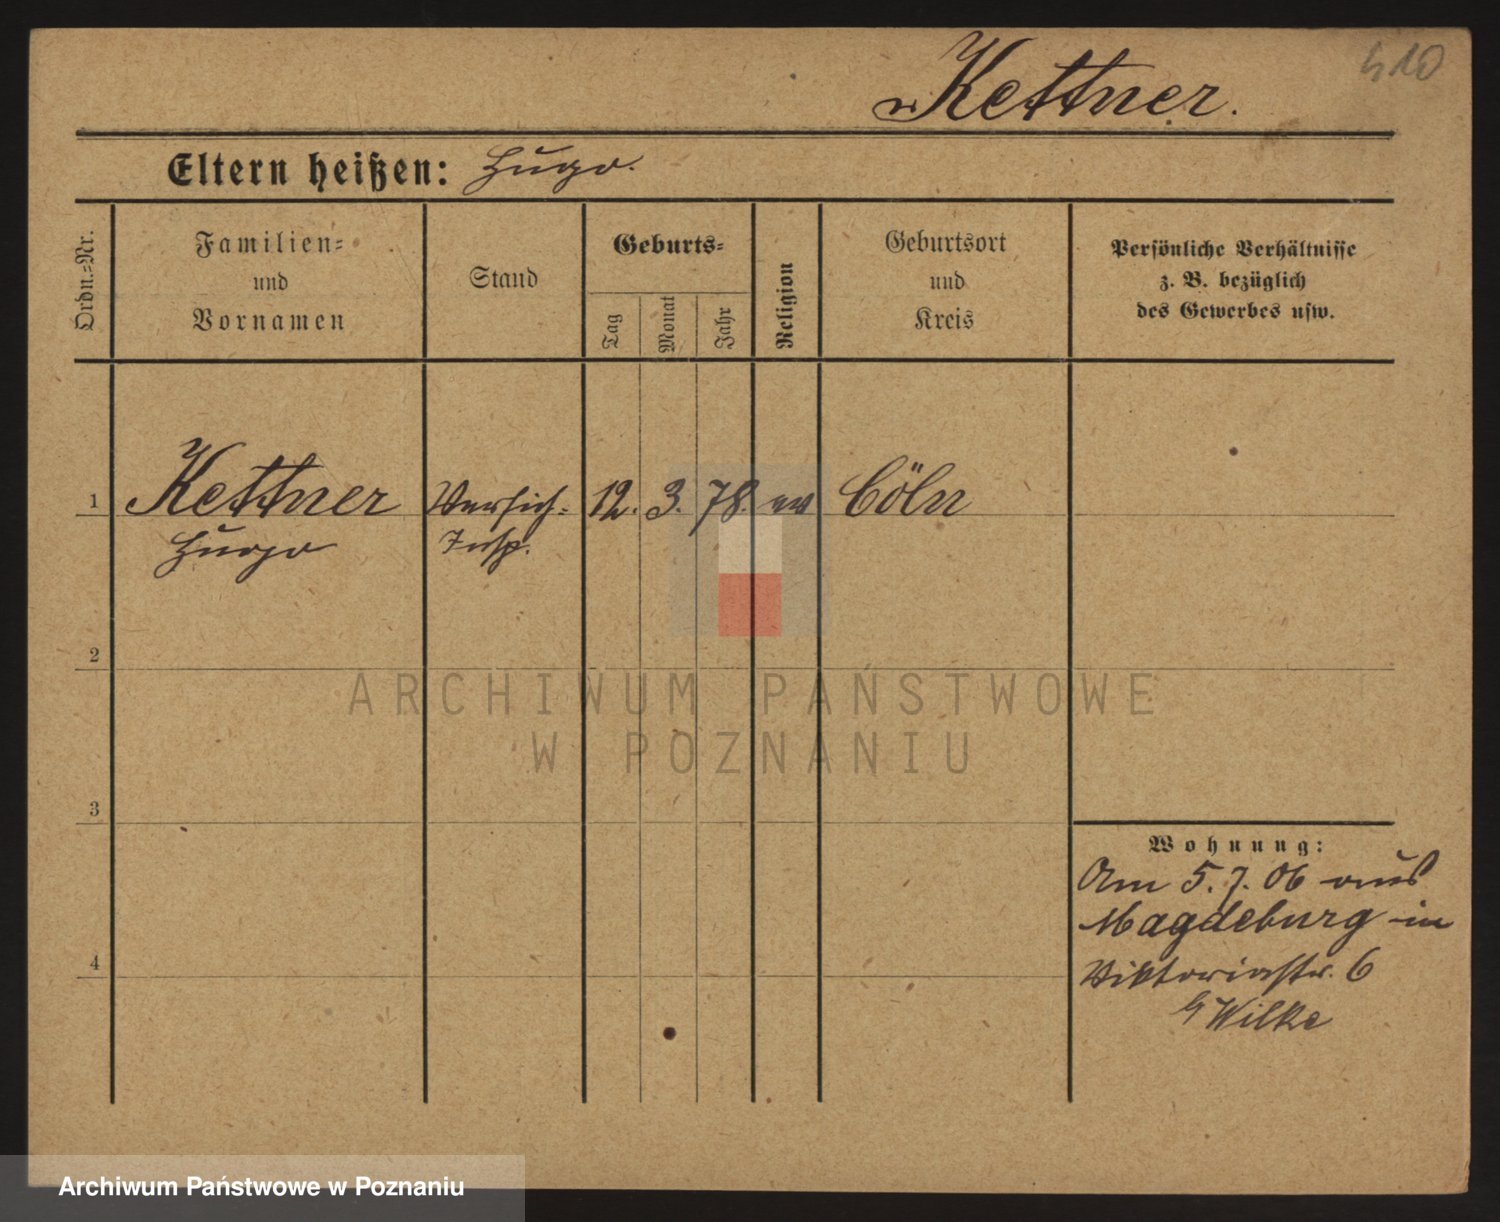 510
Kettner.
Eltern heißen: Hugo.
Ordn.=Nr.
Familien=
und
Vornamen
Stand
Geburts=
Tag
Monat
Jahr
Religion
Geburtsort
und
Kreis
Persönliche Verhältnisse
z. B. bezüglich
des Gewerbes usw.
1 Kettner Versich= 12. 3. 78. ev Cöln
Hugo Insp.
2
ARCHIWUM PAŃSTWOWE
W POZNANIU
3
Wohnung:
Am 5. 7. 06 aus
Magdeburg in
4
Viktoriastr. 6
b/ Wilke
Archiwum Państwowe w Poznaniu